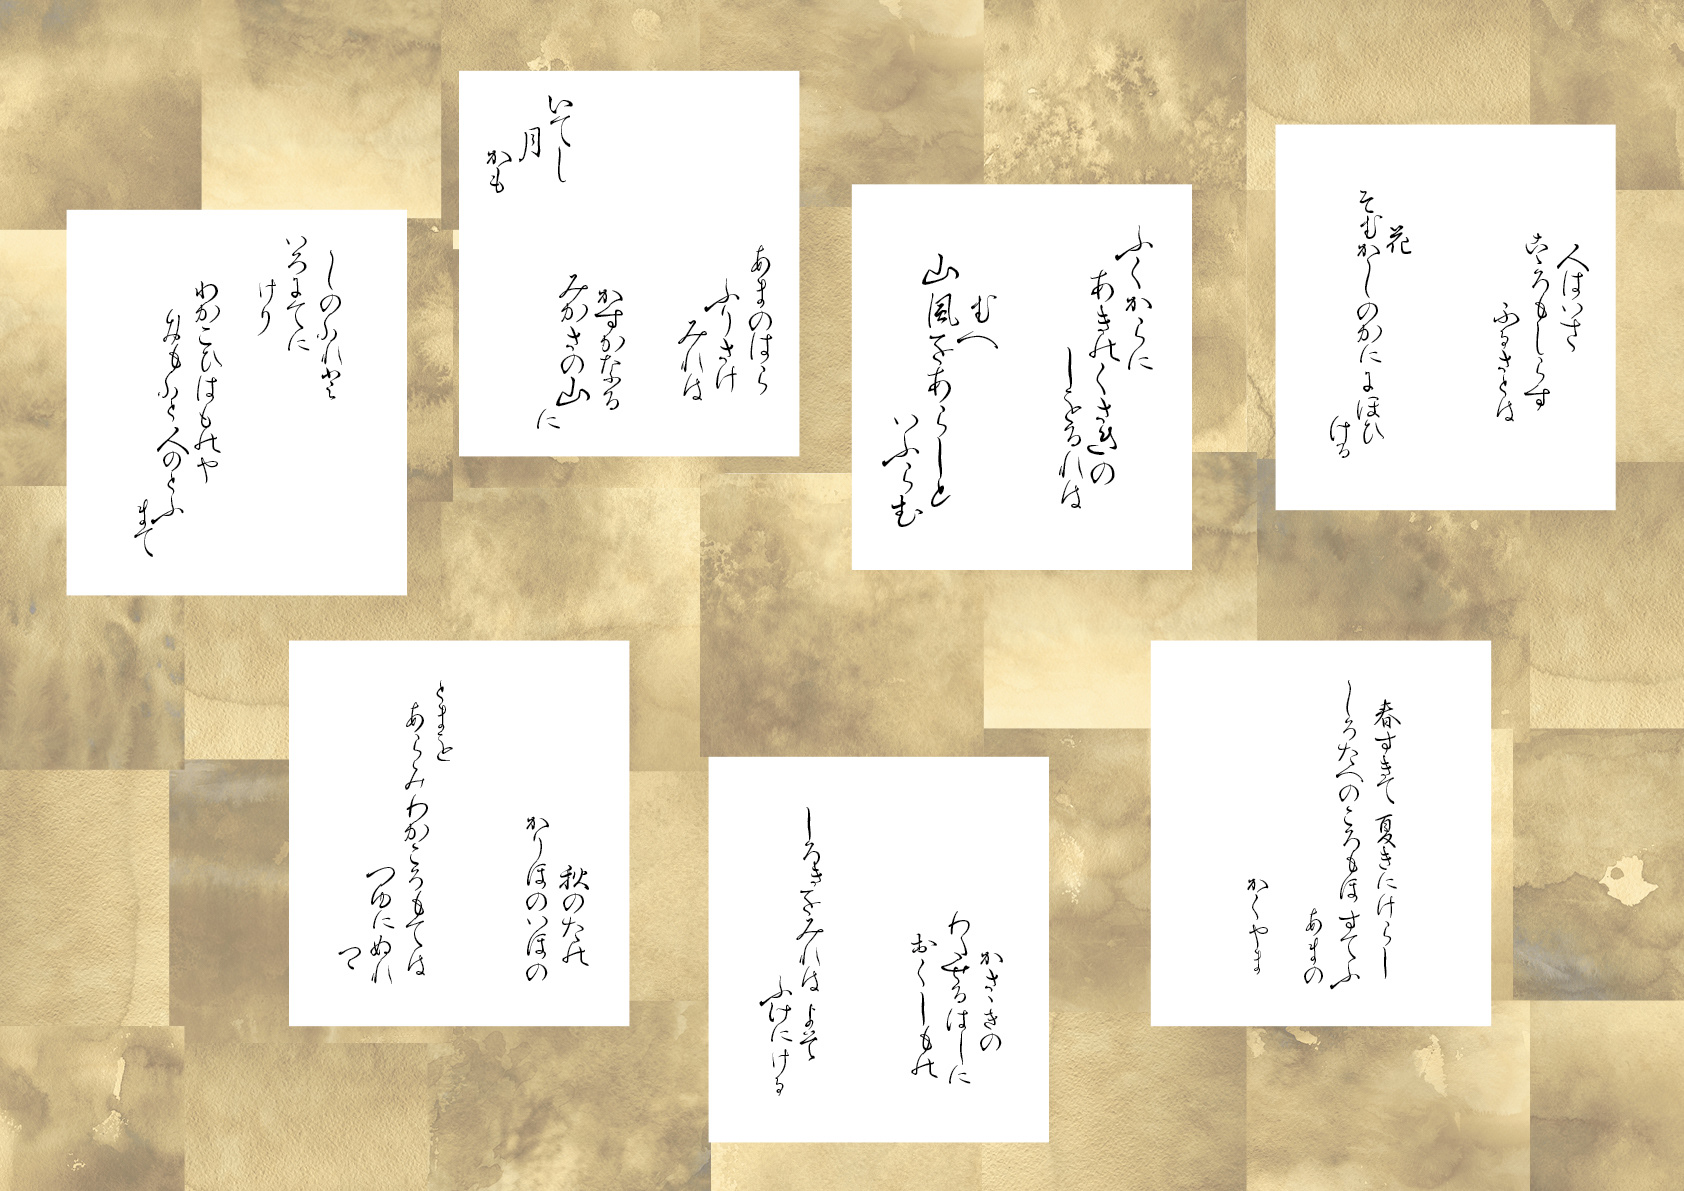 人はいさ
こゝろもしらす
ふるさとは
花
そむかしのかににほひ
ける
ふくからに
あきのくさきの
しをるれは
むへ
山風をあらしと
いふらむ
あまのはら
ふりさけ
みれは
かすかなる
みかさの山
に
いてし
月
かも
しのふれと
いろにてに
けり
わかこひはものや
おもふと人のとふ
まて
春すきて 夏きにけらし
しろたへのころもほすてふ
あまの
かくやま
かさゝきの
わたせるはしに
おくしもの
しろきをみれはよそ
ふけにける
秋のたの
かりほのいほの
とまを
あらみわかころもては
つゆにぬれ
つゝ